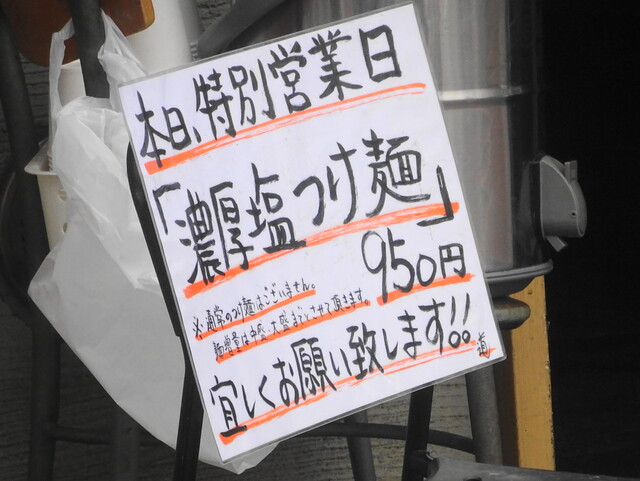 本日、特別営業日
「濃厚塩つけ麺」
950円
※通常のつけ麺はございません。
麺増量は中盛・大盛までとさせて頂きます。
宜しくお願い致します!!
道